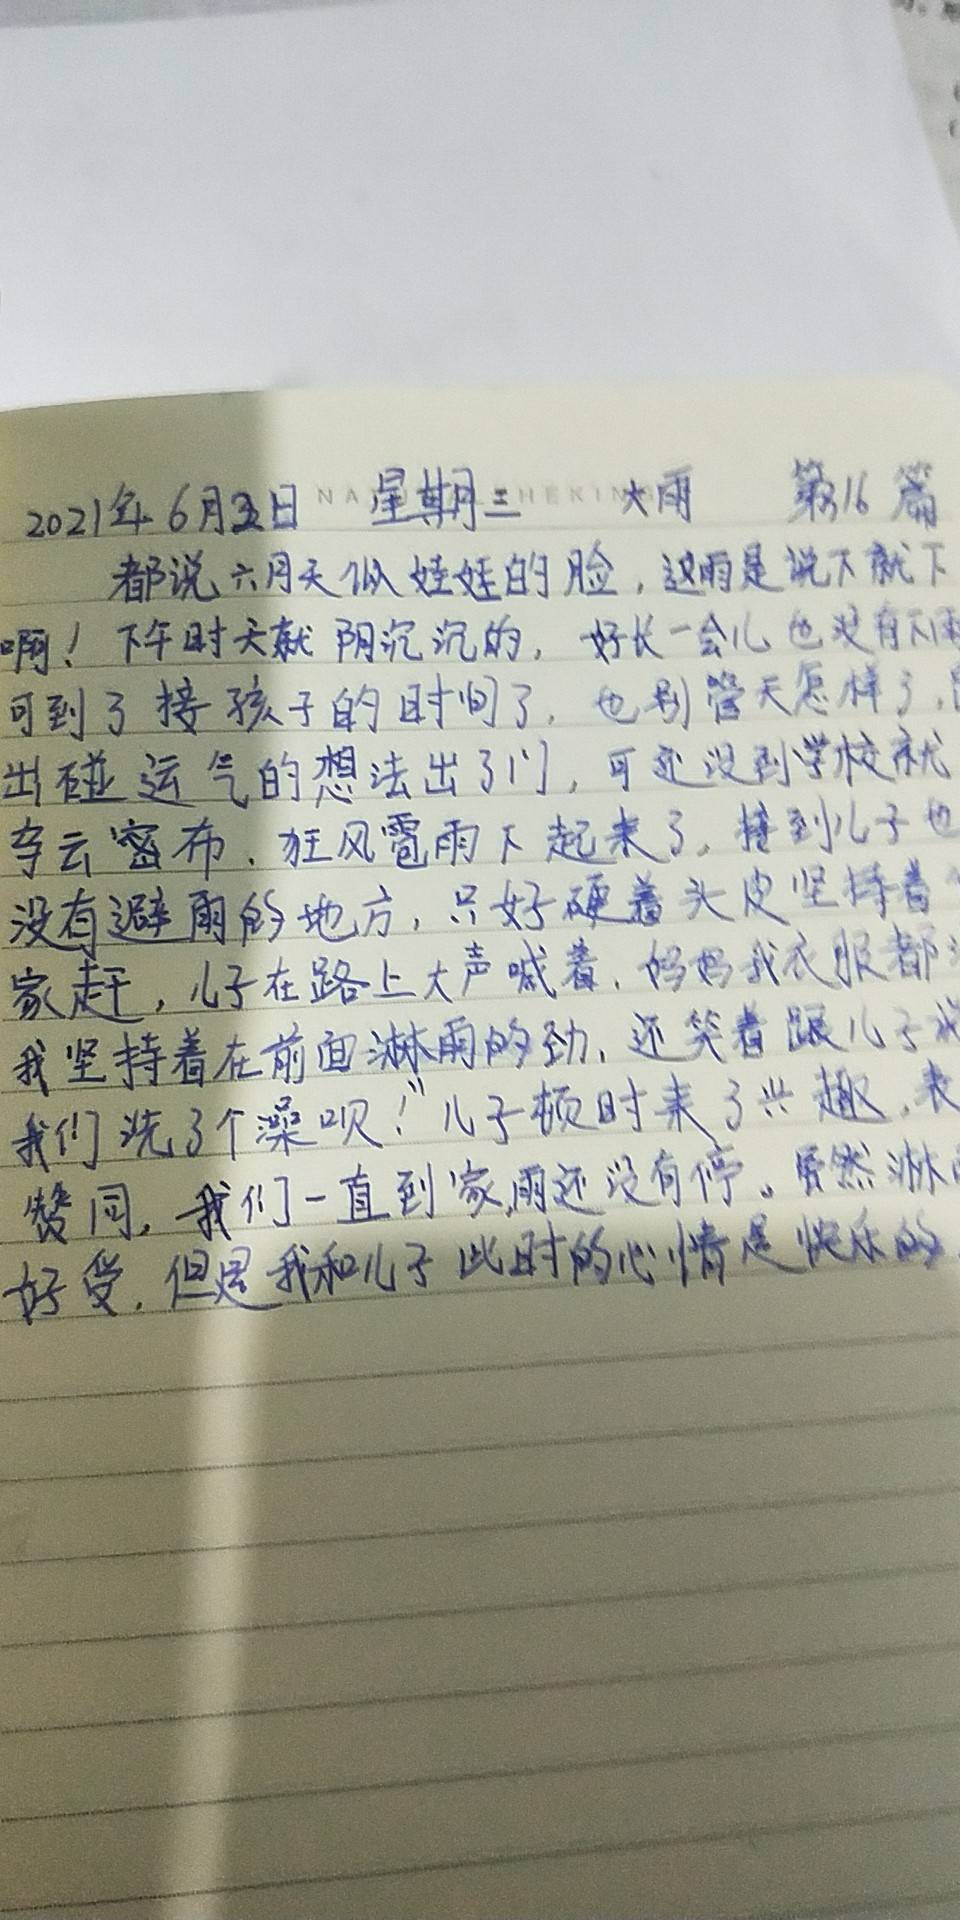 2021年6月五日 星期三 大雨 第16篇
都说六月天似娃娃的脸，这雨是说下就下
啊！下午时天就阴沉沉的，好长一会儿也没有下雨
可到了接孩子的时间了，也别管天怎样了，
出碰运气的想法出了门，可还没到学校就
云密布、狂风雹雨下起来了。接到儿子也
没有避雨的地方，只好硬着头皮坚持着
家赶，儿子在路上大声喊着，妈妈我衣服都
我坚持着在前面淋雨的劲，还笑着跟儿子说
我们洗了个澡呗！”儿子顿时来了兴趣，表
赞同，我们一直到家，雨还没有停。虽然淋
好受，但是我和儿子此时的心情是快乐的